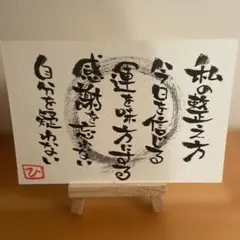 私の整え方
今日を信じる
運を味方にする
感謝を忘れない
自分を疑わない
ひ